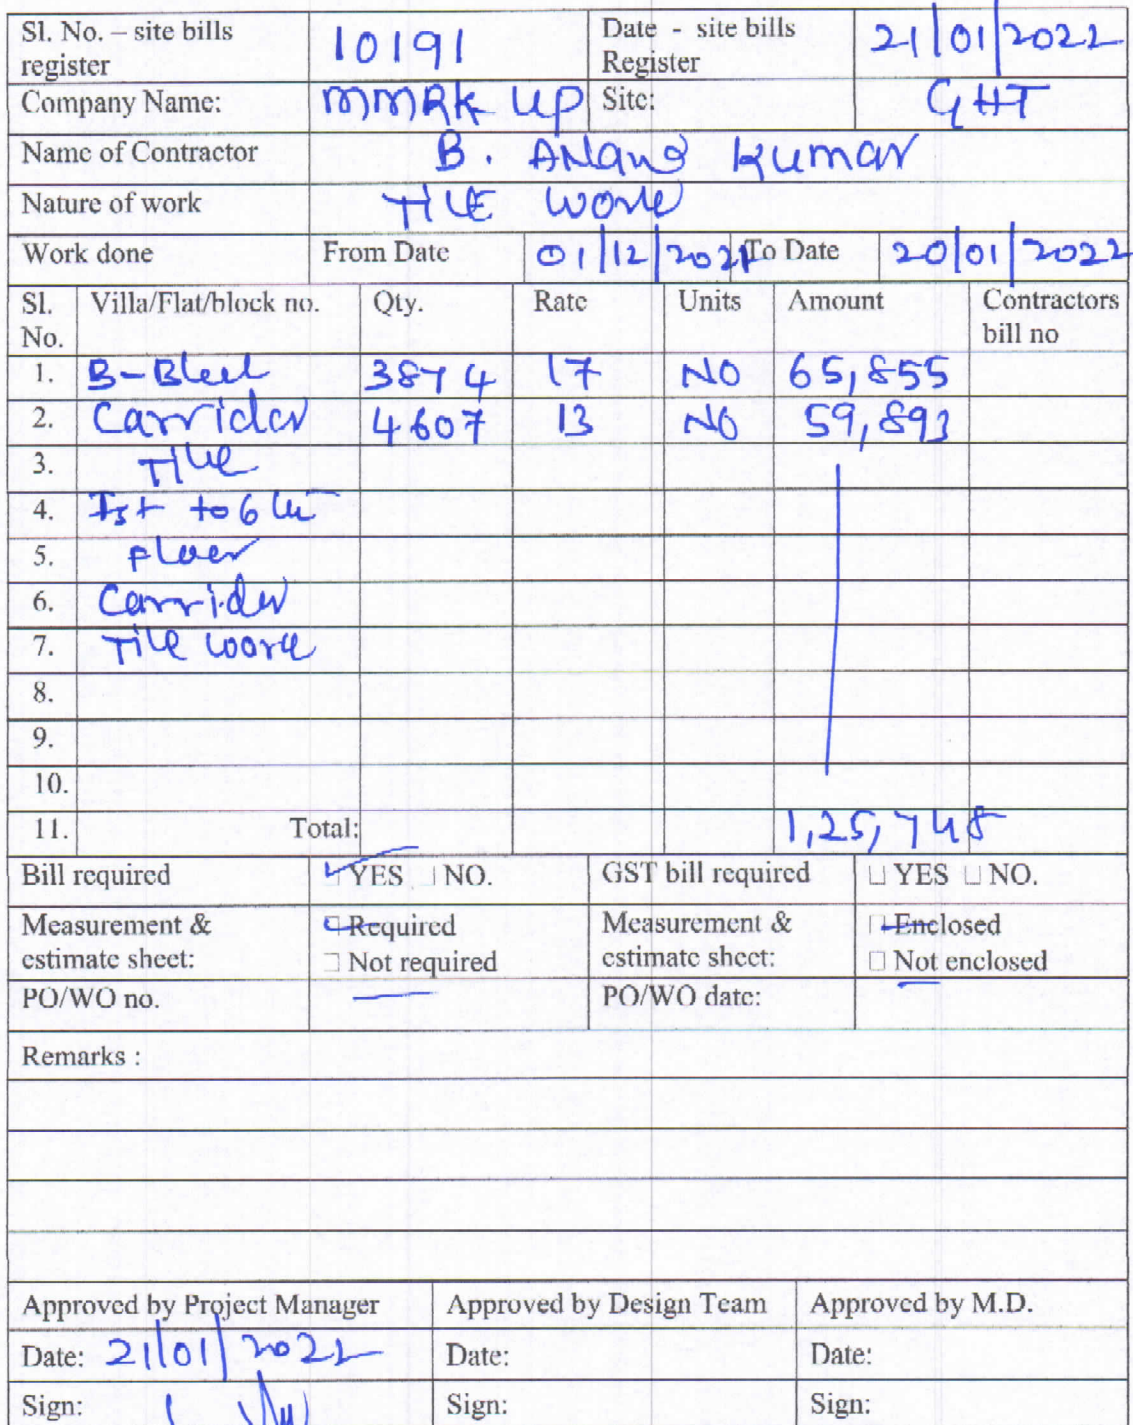 Sl. No. – site bills register 10191 Date - site bills Register 21/01/2022
Company Name: MMRK UP Site: GHT
Name of Contractor B. Anand Kumar
Nature of work TILE WORK
Work done From Date 01/12/2021 To Date 20/01/2022
Sl. No. Villa/Flat/block no. Qty. Rate Units Amount Contractors bill no
1. B-Block 3874 17 NO 65,855
2. Carridor 4607 13 NO 59,893
3. Tile
4. Ist to 6th
5. Floor
6. Carridor
7. Tile work
8.
9.
10.
11. Total: 1,25,748
Bill required YES NO. GST bill required YES NO.
Measurement & estimate sheet: Required Not required Measurement & estimate sheet: Enclosed Not enclosed
PO/WO no. — PO/WO date: —
Remarks :
Approved by Project Manager Approved by Design Team Approved by M.D.
Date: 21/01/2022 Date: Date:
Sign: Sign: Sign: